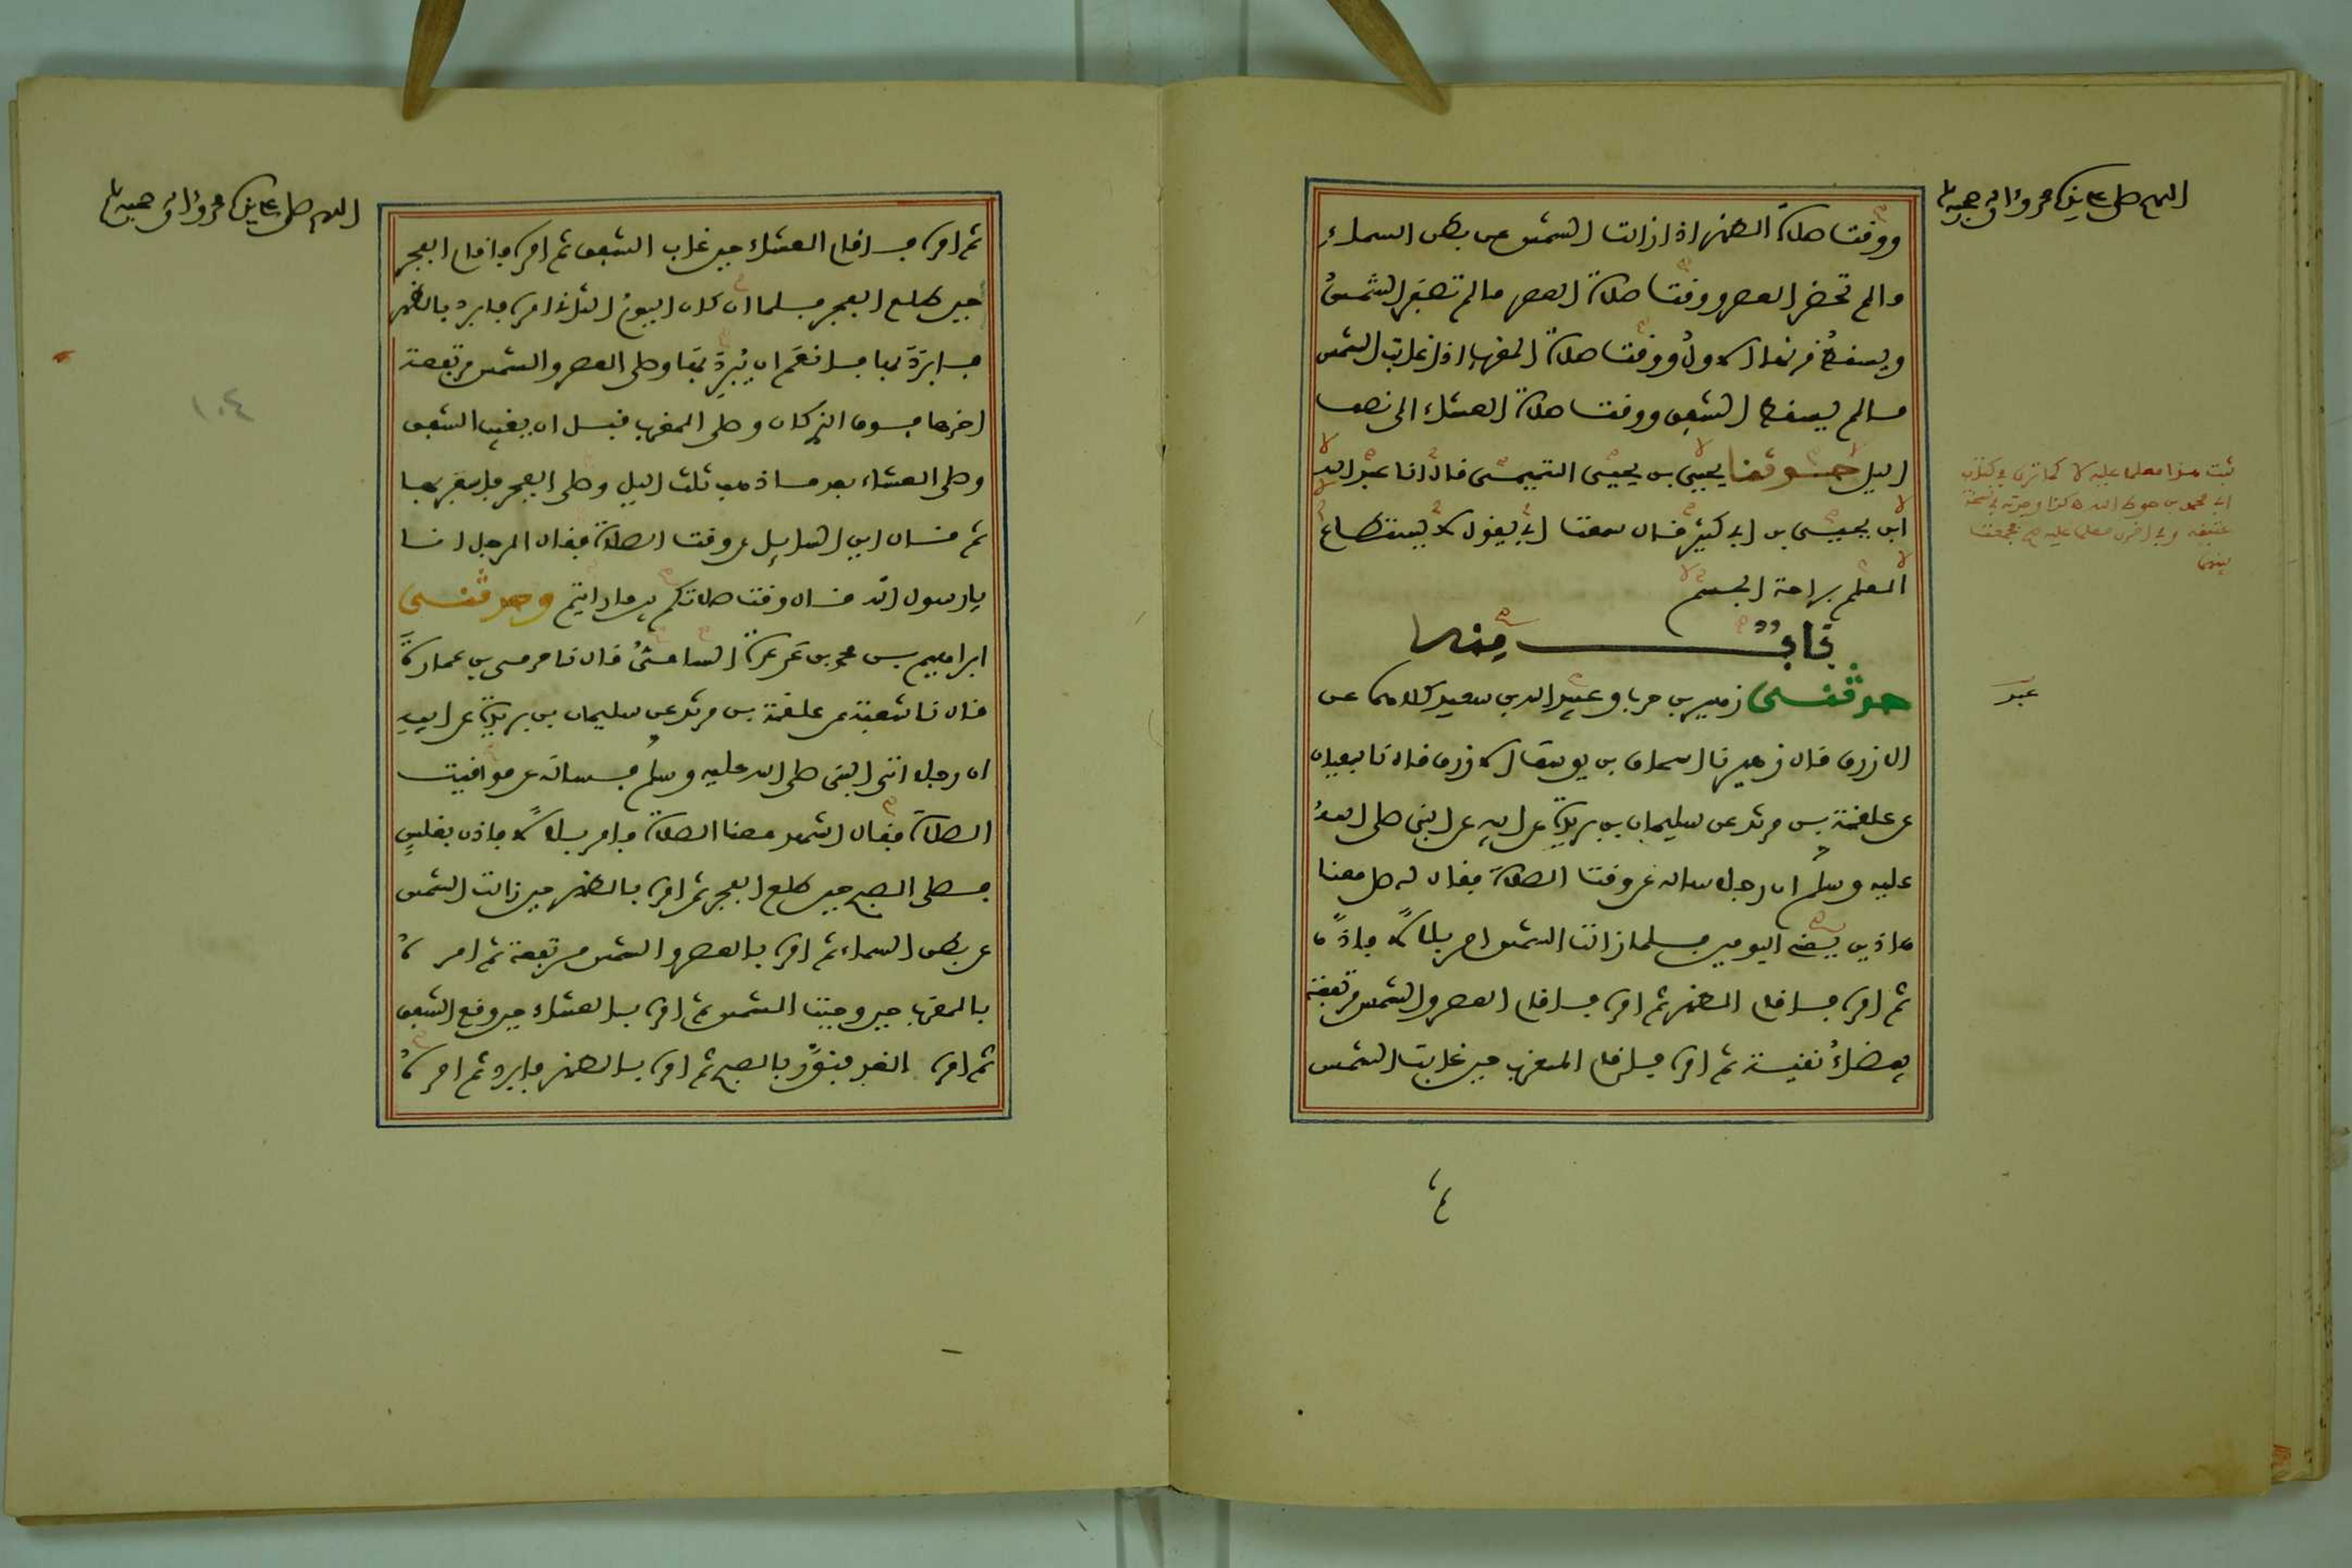 اللهم صل على سيدنا محمد واله وصحبه
ووقت صلاة الظهر اذا زالت الشمس عن بطن السماء
ما لم تحضر العصر ووقت صلاة العصر ما لم تصفر الشمس
ويسقط قرنها الاول ووقت صلاة المغرب اذا غابت الشمس
ما لم يسقط الشفق ووقت صلاة العشاء الى نصف
اليل حدثنا يحيى بن يحيى التميمي قال انا عبد الله
ابن يحيى بن ابي كثير قال سمعت ابي يقول لا يستطاع
العلم براحة الجسم
باب منه
حدثني زهير بن حرب وعبيد الله بن سعيد كلاهما عن
الازرق قال زهير نا اسحاق بن يوسف الازرق قال نا سفيان
عن علقمة بن مرثد عن سليمان بن بريدة عن ابيه عن النبي صلى الله
عليه وسلم ان رجلا ساله عن وقت الصلاة فقال له صل معنا
هاذين يعني اليومين فلما زالت الشمس امر بلالا فاذن
ثم امره فاقام الظهر ثم امره فاقام العصر والشمس مرتفعة
بيضاء نقية ثم امره فاقام المغرب حين غابت الشمس
ثبت هذا معلما عليه لا كما ترى في كتاب
ابي محمد بن حوط الله وكذا وجدته في نسخة
عتيقة وفي اخرى معلما عليه صح فجمعت
بينهما
عبد
اللهم صل على سيدنا محمد واله وصحبه
ثم امره فاقام العشاء حين غاب الشفق ثم امره فاقام الفجر
حين طلع الفجر فلما ان كان اليوم الثاني امره فابرد بالظهر
فابرد بها فانعم ان يبرد بها وصلى العصر والشمس مرتفعة
اخرها فوق الذي كان وصلى المغرب قبل ان يغيب الشفق
وصلى العشاء بعد ما ذهب ثلث اليل وصلى الفجر فاسفر بها
ثم قال اين السايل عن وقت الصلاة فقال الرجل انا
يا رسول الله قال وقت صلاتكم بين ما رايتم وحدثني
ابراهيم بن محمد بن عرعرة السامي قال نا حرمي بن عمارة
قال نا شعبة عن علقمة بن مرثد عن سليمان بن بريدة عن ابيه
ان رجلا اتى النبي صلى الله عليه وسلم فساله عن مواقيت
الصلاة فقال اشهد معنا الصلاة فامر بلالا فاذن بغلس
فصلى الصبح حين طلع الفجر ثم امره بالظهر حين زالت الشمس
عن بطن السماء ثم امره بالعصر والشمس مرتفعة ثم امره
بالمغرب حين وجبت الشمس ثم امره بالعشاء حين وقع الشفق
ثم امره الغد فنور بالصبح ثم امره بالظهر فابرد ثم امره
١٠٤